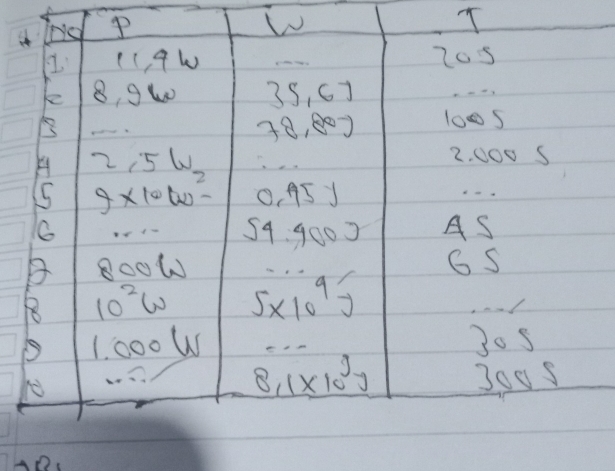 No P W T
1 11,4 W .... 20 S
2 8,9 W 35,6 J ....
3 .... 78,80 J 100 S
4 2,5 W .... 2.000 S
5 9 x 10 W² - 0,45 J ...
6 .... 54.400 J 4 S
7 800 W ... 6 S
8 10² W 5 x 10⁴ J ....
9 1.000 W ... 30 S
10 .... 8,1 x 10³ J 300 S